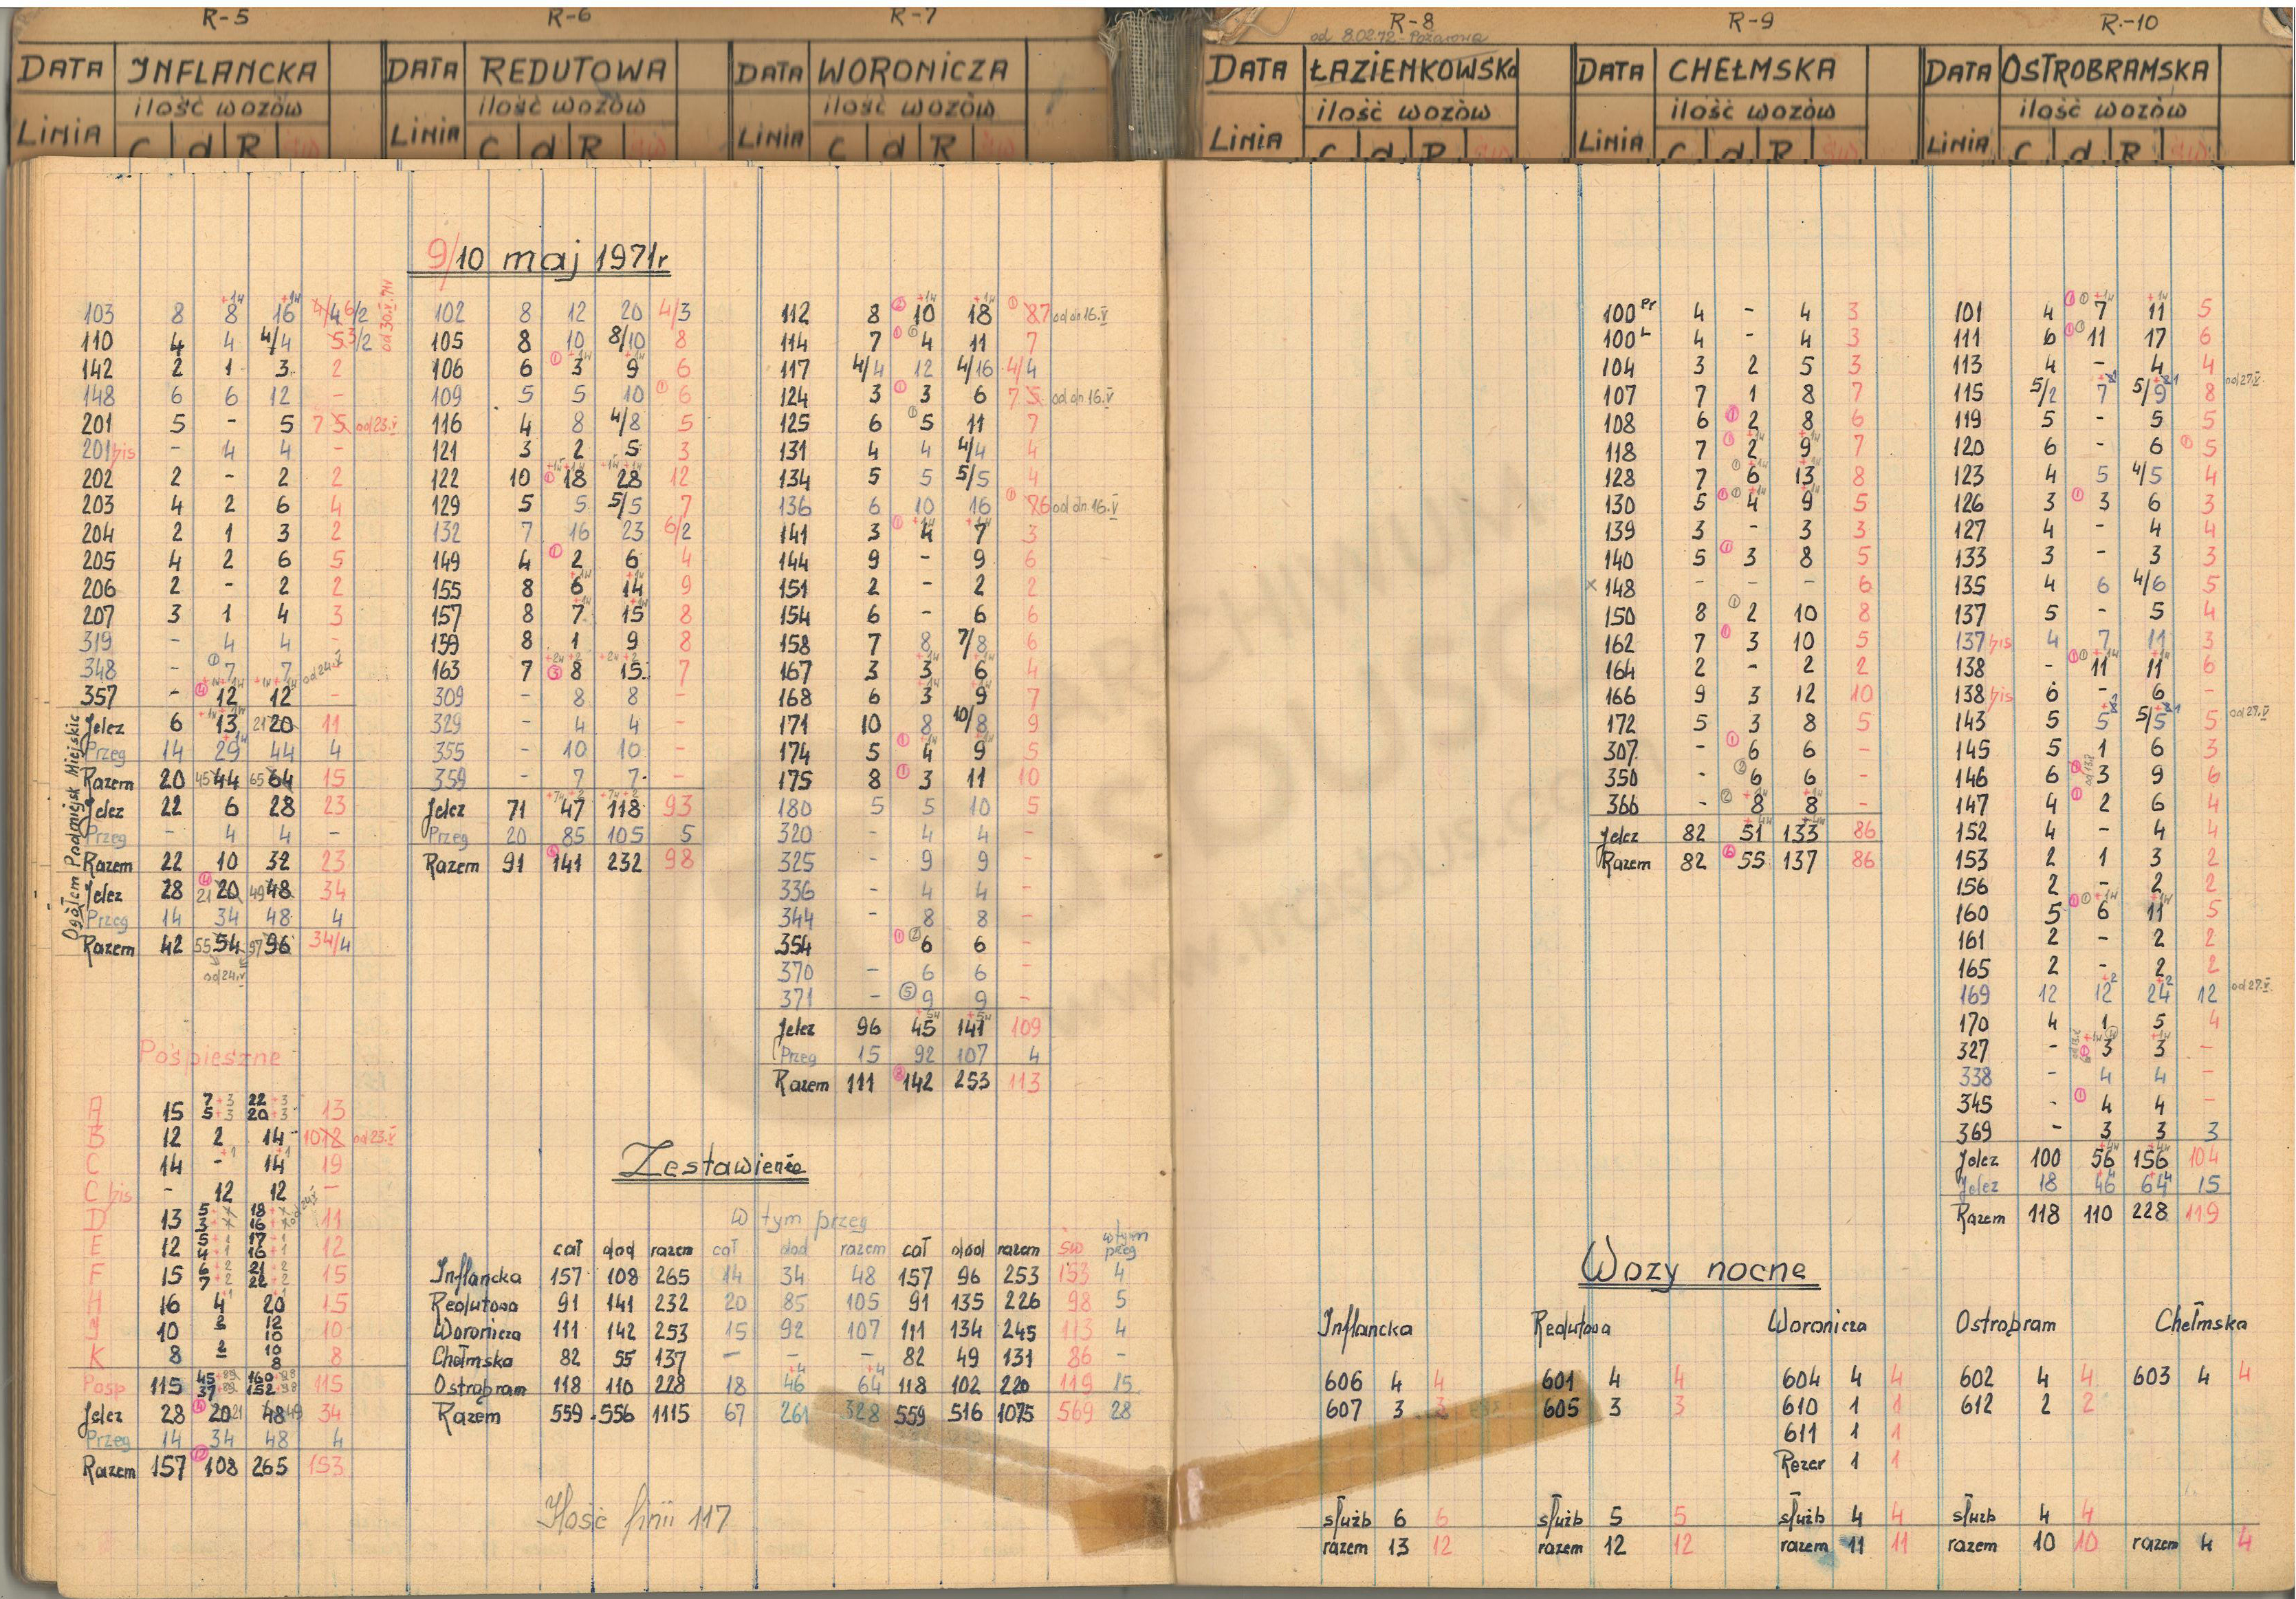 R-5 R-6 R-7 R-8 R-9 R.-10
od 8.02.72 - Pożarowa
DATA INFLANCKA DATA REDUTOWA DATA WORONICZA DATA ŁAZIENKOWSKA DATA CHEŁMSKA DATA OSTROBRAMSKA
ilość wozów ilość wozów ilość wozów ilość wozów ilość wozów ilość wozów
LINIA C d R LINIA C d R LINIA C d R LINIA C d R LINIA C d R LINIA C d R
9/10 maj 1971r
103 8 8 16
110 4 4 4/4
142 2 1 3 2
148 6 6 12 -
201 5 - 5 7 5 od 23.V
201 bis - 4 4 -
202 2 - 2 2
203 4 2 6 4
204 2 1 3 2
205 4 2 6 5
206 2 - 2 2
207 3 1 4 3
319 - 4 4 -
348 - 7 7 od 24.V
357 - 12 12 -
Ogółem Podmiejsk Miejskie
Jelcz 6 13 21 20 11
Przeg 14 29 44 4
Razem 20 45 44 65 64 15
Jelcz 22 6 28 23
Przeg - 4 4 -
Razem 22 10 32 23
Jelcz 28 21 20 49 48 34
Przeg 14 34 48 4
Razem 42 55 54 97 96 34/4
od 24.V
Pośpieszne
A 15 7+3 22+3 13
5+3 20+3
B 12 2 14 10 12 od 23.V
C 14 - 14 19
C bis - 12 12 -
D 13 5 18 11
3 16
E 12 5+1 17+1 12
4+1 16+1
F 15 6+2 21+2 15
7+2 22+2
H 16 4 20 15
J 10 2 12 10
10
K 8 2 10 8
8
Posp 115 45 160 115
37 152
Jelcz 28 20 21 48 49 34
Przeg 14 34 48 4
Razem 157 108 265 153
102 8 12 20 4/3
105 8 10 8/10 8
106 6 3 9 6
109 5 5 10 6
116 4 8 4/8 5
121 3 2 5 3
122 10 18 28 12
129 5 5 5/5 7
132 7 16 23 6/2
149 4 2 6 4
155 8 6 14 9
157 8 7 15 8
159 8 1 9 8
163 7 8 15 7
309 - 8 8 -
329 - 4 4 -
355 - 10 10 -
359 - 7 7 -
Jelcz 71 47 118 93
Przeg 20 85 105 5
Razem 91 141 232 98
112 8 10 18 8 7 od dn 16.V
114 7 4 11 7
117 4/4 12 4/16 4/4
124 3 3 6 7 5 od dn 16.V
125 6 5 11 7
131 4 4 4/4 4
134 5 5 5/5 4
136 6 10 16 8 6 od dn. 16.V
141 3 4 7 3
144 9 - 9 6
151 2 - 2 2
154 6 - 6 6
158 7 8 7/8 6
167 3 3 6 4
168 6 3 9 7
171 10 8 10/8 9
174 5 4 9 5
175 8 3 11 10
180 5 5 10 5
320 - 4 4 -
325 - 9 9 -
336 - 4 4 -
344 - 8 8 -
354 6 6 -
370 - 6 6 -
371 - 9 9 -
Jelcz 96 45 141 109
Przeg 15 92 107 4
Razem 111 142 253 113
Zestawienie
w tym przeg
cał dod razem cał dod razem cał dod razem św w tym przeg
Inflancka 157 108 265 14 34 48 157 96 253 153 4
Redutowa 91 141 232 20 85 105 91 135 226 98 5
Woronicza 111 142 253 15 92 107 111 134 245 113 4
Chełmska 82 55 137 - - - 82 49 131 86 -
Ostrobram 118 110 228 18 46 64 118 102 220 119 15
Razem 559 556 1115 67 261 328 559 516 1075 569 28
Ilość linii 117
100 Pr 4 - 4 3
100 L 4 - 4 3
104 3 2 5 3
107 7 1 8 7
108 6 2 8 6
118 7 2 9 7
128 7 6 13 8
130 5 4 9 5
139 3 - 3 3
140 5 3 8 5
x 148 - - - 6
150 8 2 10 8
162 7 3 10 5
164 2 - 2 2
166 9 3 12 10
172 5 3 8 5
307 - 6 6 -
350 - 6 6 -
366 - 8 8 -
Jelcz 82 51 133 86
Razem 82 55 137 86
101 4 7 11 5
111 6 11 17 6
113 4 - 4 4
115 5/2 7 5/9 8 od 27.V
119 5 - 5 5
120 6 - 6 5
123 4 5 4/5 4
126 3 3 6 3
127 4 - 4 4
133 3 - 3 3
135 4 6 4/6 5
137 5 - 5 4
137 bis 4 7 11 3
138 - 11 11 6
138 bis 6 - 6 -
143 5 5 5/5 5 od 27.V
145 5 1 6 3
146 6 3 9 6
147 4 2 6 4
152 4 - 4 4
153 2 1 3 2
156 2 - 2 2
160 5 6 11 5
161 2 - 2 2
165 2 - 2 2
169 12 12 24 12 od 27.V
170 4 1 5 4
327 - 3 3 -
338 - 4 4 -
345 - 4 4 -
369 - 3 3 3
Jelcz 100 56 156 104
Jelcz 18 46 64 15
Razem 118 110 228 119
Wozy nocne
Inflancka Redutowa Woronicza Ostrobram Chełmska
606 4 4 601 4 4 604 4 4 602 4 4 603 4 4
607 3 3 605 3 3 610 1 1 612 2 2
611 1 1
Rezer 1 1
służb 6 6 służb 5 5 służb 4 4 służb 4 4
razem 13 12 razem 12 12 razem 11 11 razem 10 10 razem 4 4